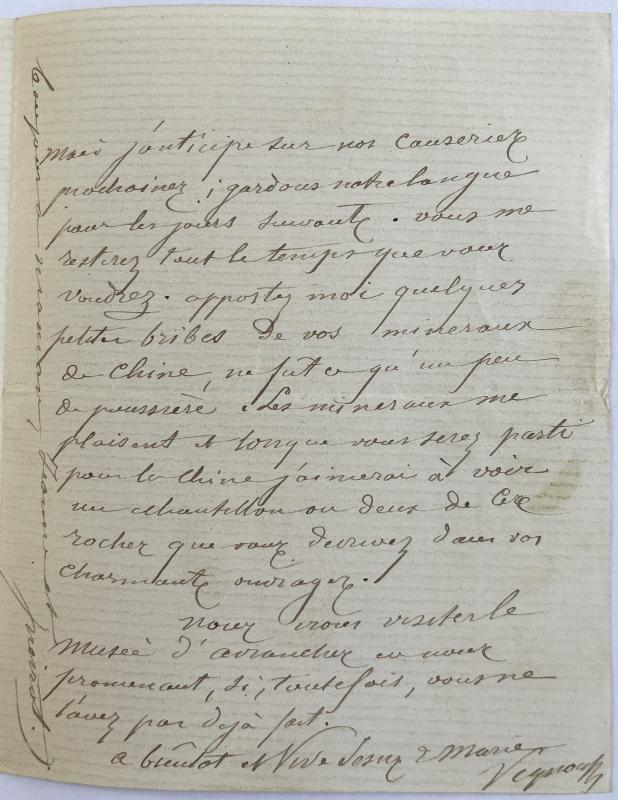 Mais j'anticipe sur nos causeries
prochaines ; gardons notre langue
pour les jours suivants. vous me
resterez tout le temps que vous
voudrez. apportez moi quelques
petites bribes de vos mineraux
de Chine, ne fut ce qu'un peu
de poussière. Les mineraux me
plaisent et lorsque vous serez parti
pour la Chine j'aimerai à voir
un echantillon ou deux de ces
rochers que vous decrivez dans vos
charmants ouvrages.
Nous irons visiter le
Musée d'avranches en nous
promenant, si, toutefois, vous ne
l'avez pas déjà fait.
a bientot et Vive Jesus & Marie
toujours